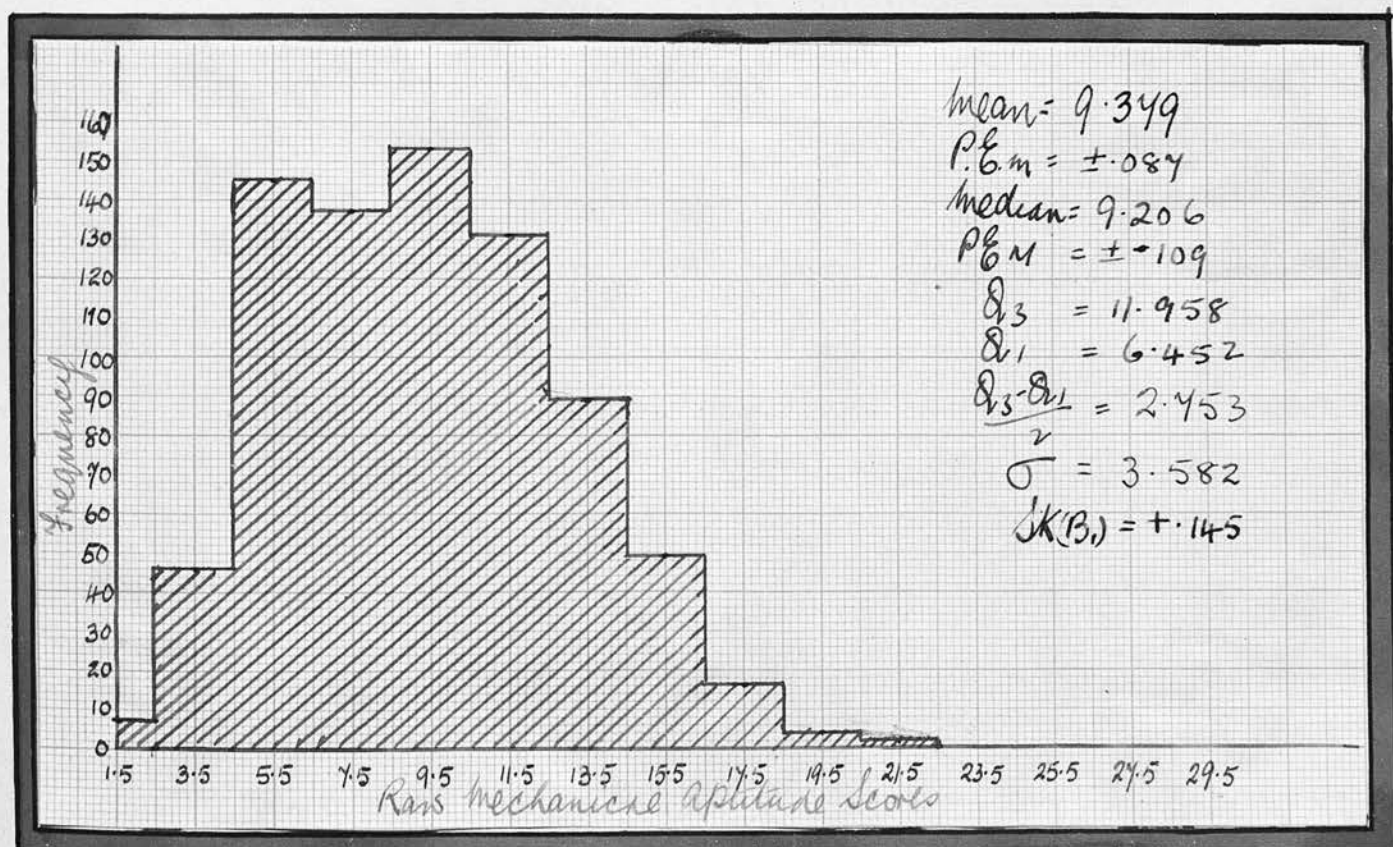 Frequency
160
150
140
130
120
110
100
90
80
70
60
50
40
30
20
10
0
1.5 3.5 5.5 7.5 9.5 11.5 13.5 15.5 17.5 19.5 21.5 23.5 25.5 27.5 29.5
Raw Mechanical Aptitude Scores
Mean = 9.379
P.E.m = ±.087
Median = 9.206
PEM = ±.109
Q3 = 11.958
Q1 = 6.452
Q3-Q1
2 = 2.753
σ = 3.582
SK(B1) = +.145